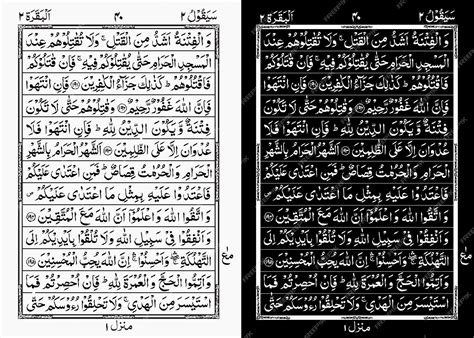 سَيَقُوْلُ ٢ ٣٠ اَلْبَقَرَة ٢
وَالْفِتْنَةُ اَشَدُّ مِنَ الْقَتْلِ ۚ وَلَا تُقٰتِلُوْهُمْ عِنْدَ
الْمَسْجِدِ الْحَرَامِ حَتّٰى يُقٰتِلُوْكُمْ فِيْهِ ۚ فَاِنْ قٰتَلُوْكُمْ
فَاقْتُلُوْهُمْ ؕ كَذٰلِكَ جَزَآءُ الْكٰفِرِيْنَ ﴿١٩١﴾ فَاِنِ انْتَهَوْا
فَاِنَّ اللّٰهَ غَفُوْرٌ رَّحِيْمٌ ﴿١٩٢﴾ وَقٰتِلُوْهُمْ حَتّٰى لَا تَكُوْنَ
فِتْنَةٌ وَّيَكُوْنَ الدِّيْنُ لِلّٰهِ ؕ فَاِنِ انْتَهَوْا فَلَا
عُدْوَانَ اِلَّا عَلَى الظّٰلِمِيْنَ ﴿١٩٣﴾ اَلشَّهْرُ الْحَرَامُ بِالشَّهْرِ
الْحَرَامِ وَالْحُرُمٰتُ قِصَاصٌ ؕ فَمَنِ اعْتَدٰى عَلَيْكُمْ
فَاعْتَدُوْا عَلَيْهِ بِمِثْلِ مَا اعْتَدٰى عَلَيْكُمْ
وَاتَّقُوا اللّٰهَ وَاعْلَمُوْٓا اَنَّ اللّٰهَ مَعَ الْمُتَّقِيْنَ ﴿١٩٤﴾
وَاَنْفِقُوْا فِيْ سَبِيْلِ اللّٰهِ وَلَا تُلْقُوْا بِاَيْدِيْكُمْ اِلَى
التَّهْلُكَةِ ۛۚ وَاَحْسِنُوْا ۛۚ اِنَّ اللّٰهَ يُحِبُّ الْمُحْسِنِيْنَ ﴿١٩٥﴾
وَاَتِمُّوا الْحَجَّ وَالْعُمْرَةَ لِلّٰهِ ؕ فَاِنْ اُحْصِرْتُمْ فَمَا
اسْتَيْسَرَ مِنَ الْهَدْيِ ۚ وَلَا تَحْلِقُوْا رُءُوْسَكُمْ حَتّٰى
منزل ١
سَيَقُوْلُ ٢ ٣٠ اَلْبَقَرَة ٢
وَالْفِتْنَةُ اَشَدُّ مِنَ الْقَتْلِ ۚ وَلَا تُقٰتِلُوْهُمْ عِنْدَ
الْمَسْجِدِ الْحَرَامِ حَتّٰى يُقٰتِلُوْكُمْ فِيْهِ ۚ فَاِنْ قٰتَلُوْكُمْ
فَاقْتُلُوْهُمْ ؕ كَذٰلِكَ جَزَآءُ الْكٰفِرِيْنَ ﴿١٩١﴾ فَاِنِ انْتَهَوْا
فَاِنَّ اللّٰهَ غَفُوْرٌ رَّحِيْمٌ ﴿١٩٢﴾ وَقٰتِلُوْهُمْ حَتّٰى لَا تَكُوْنَ
فِتْنَةٌ وَّيَكُوْنَ الدِّيْنُ لِلّٰهِ ؕ فَاِنِ انْتَهَوْا فَلَا
عُدْوَانَ اِلَّا عَلَى الظّٰلِمِيْنَ ﴿١٩٣﴾ اَلشَّهْرُ الْحَرَامُ بِالشَّهْرِ
الْحَرَامِ وَالْحُرُمٰتُ قِصَاصٌ ؕ فَمَنِ اعْتَدٰى عَلَيْكُمْ
فَاعْتَدُوْا عَلَيْهِ بِمِثْلِ مَا اعْتَدٰى عَلَيْكُمْ
وَاتَّقُوا اللّٰهَ وَاعْلَمُوْٓا اَنَّ اللّٰهَ مَعَ الْمُتَّقِيْنَ ﴿١٩٤﴾
وَاَنْفِقُوْا فِيْ سَبِيْلِ اللّٰهِ وَلَا تُلْقُوْا بِاَيْدِيْكُمْ اِلَى
التَّهْلُكَةِ ۛۚ وَاَحْسِنُوْا ۛۚ اِنَّ اللّٰهَ يُحِبُّ الْمُحْسِنِيْنَ ﴿١٩٥﴾
وَاَتِمُّوا الْحَجَّ وَالْعُمْرَةَ لِلّٰهِ ؕ فَاِنْ اُحْصِرْتُمْ فَمَا
اسْتَيْسَرَ مِنَ الْهَدْيِ ۚ وَلَا تَحْلِقُوْا رُءُوْسَكُمْ حَتّٰى
منزل ١